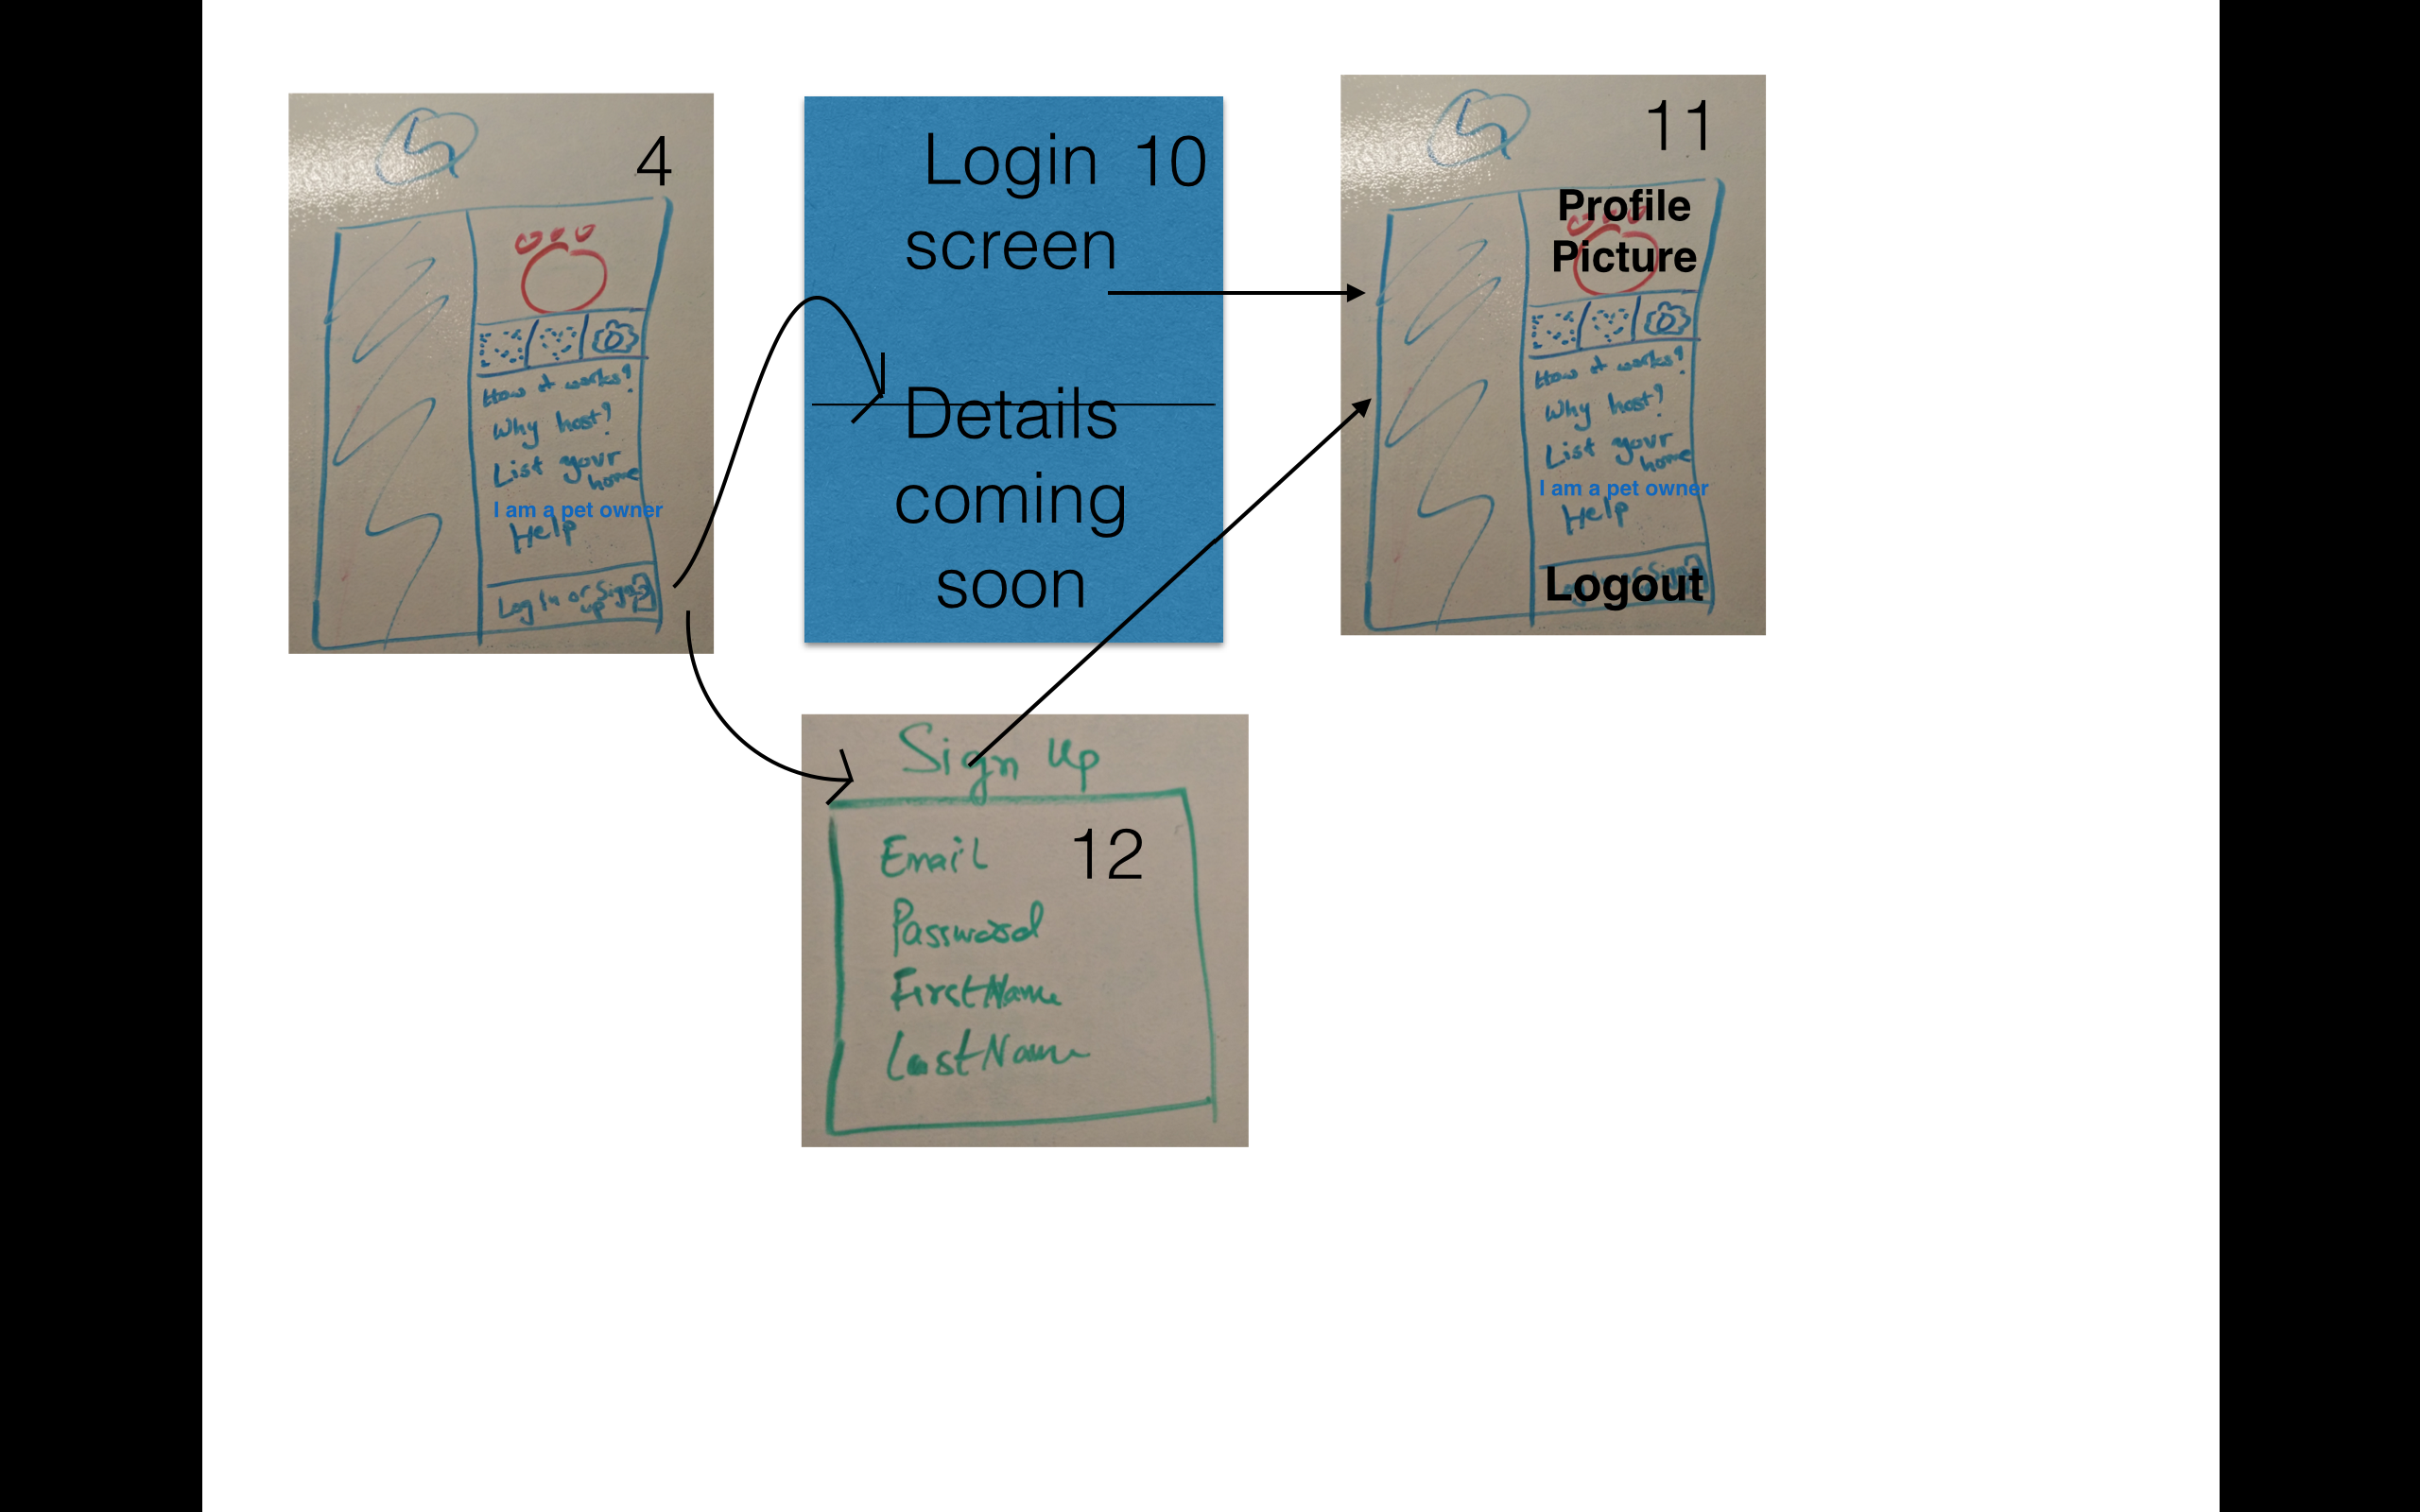 4
How it works?
Why host?
List your
home
I am a pet owner
Help
Log In or Sign
up
Login 10
screen
Details
coming
soon
11
Profile
Picture
How it works?
Why host?
List your
home
I am a pet owner
Help
Logout
Sign Up
12
Email
Password
FirstName
LastName